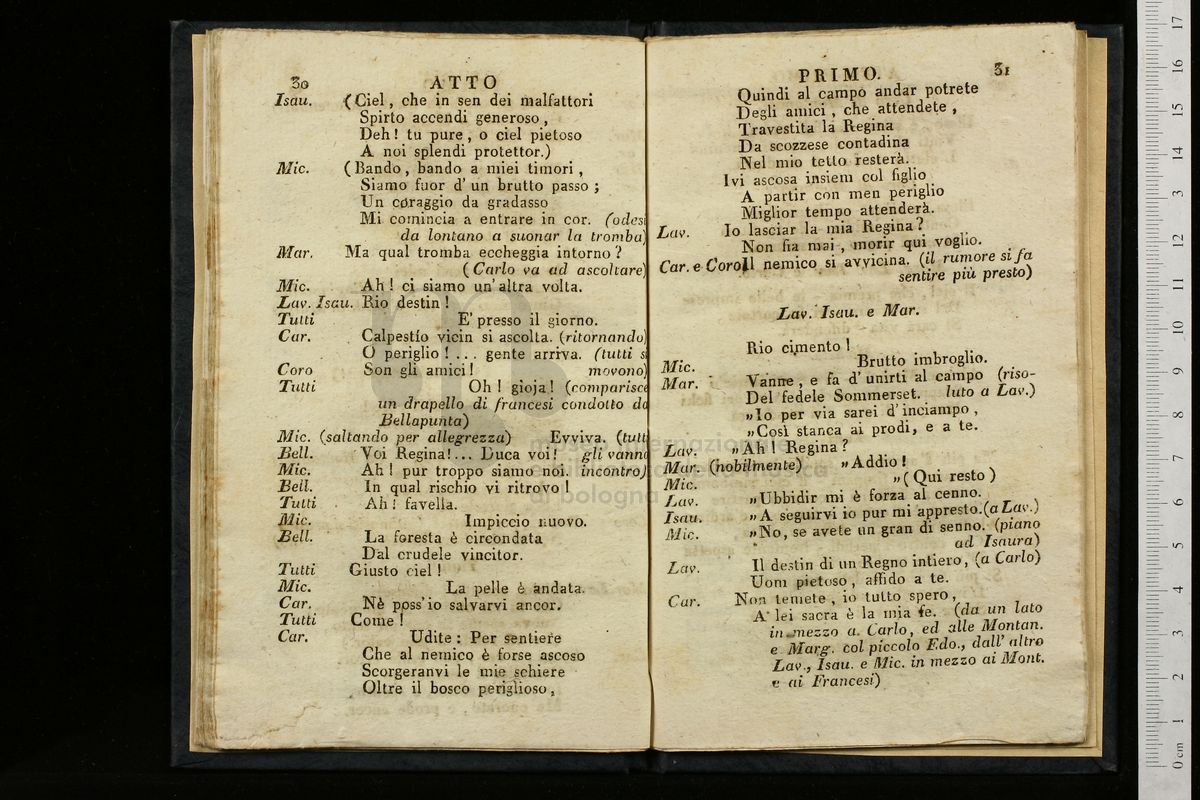 30 ATTO
Isau. (Ciel, che in sen dei malfattori
Spirto accendi generoso,
Deh! tu pure, o ciel pietoso
A noi splendi protettor.)
Mic. (Bando, bando a miei timori,
Siamo fuor d'un brutto passo;
Un coraggio da gradasso
Mi comincia a entrare in cor. (odesi
da lontano a suonar la tromba)
Mar. Ma qual tromba eccheggia intorno?
(Carlo va ad ascoltare)
Mic. Ah! ci siamo un'altra volta.
Lav. Isau. Rio destin!
Tutti E' presso il giorno.
Car. Calpestío vicin si ascolta. (ritornando)
O periglio!... gente arriva. (tutti si
Coro Son gli amici! movono)
Tutti Oh! gioja! (comparisce
un drapello di francesi condotto da
Bellapunta)
Mic. (saltando per allegrezza) Evviva. (tutti
Bell. Voi Regina!... Duca voi! gli vanno
Mic. Ah! pur troppo siamo noi. incontro)
Bell. In qual rischio vi ritrovo!
Tutti Ah! favella.
Mic. Impiccio nuovo.
Bell. La foresta è circondata
Dal crudele vincitor.
Tutti Giusto ciel!
Mic. La pelle è andata.
Car. Nè poss'io salvarvi ancor.
Tutti Come!
Car. Udite: Per sentiere
Che al nemico è forse ascoso
Scorgeranvi le mie schiere
Oltre il bosco periglioso,
PRIMO. 31
Quindi al campo andar potrete
Degli amici, che attendete,
Travestita la Regina
Da scozzese contadina
Nel mio tetto resterà.
Ivi ascosa insiem col figlio
A partir con men periglio
Miglior tempo attenderà.
Lav. Io lasciar la mia Regina?
Non fia mai, morir qui voglio.
Car. e Coro Il nemico si avvicina. (il rumore si fa
sentire più presto)
Lav. Isau. e Mar.
Rio cimento!
Mic. Brutto imbroglio.
Mar. Vanne, e fa d'unirti al campo (riso-
Del fedele Sommerset. luto a Lav.)
„Io per via sarei d'inciampo,
„Così stanca ai prodi, e a te.
Lav. „Ah! Regina?
Mar. (nobilmente) „Addio!
Mic. „(Qui resto)
Lav. „Ubbidir mi è forza al cenno.
Isau. „A seguirvi io pur mi appresto. (a Lav.)
Mic. „No, se avete un gran di senno. (piano
ad Isaura)
Lav. Il destin di un Regno intiero, (a Carlo)
Uom pietoso, affido a te.
Car. Non temete, io tutto spero,
A' lei sacra è la mia fe. (da un lato
in mezzo a Carlo, ed alle Montan.
e Marg. col piccolo Edo., dall'altro
Lav., Isau. e Mic. in mezzo ai Mont.
e ai Francesi)
museo internazionale
e biblioteca della musica
di bologna
0 cm 1 2 3 4 5 6 7 8 9 10 11 12 13 14 15 16 17